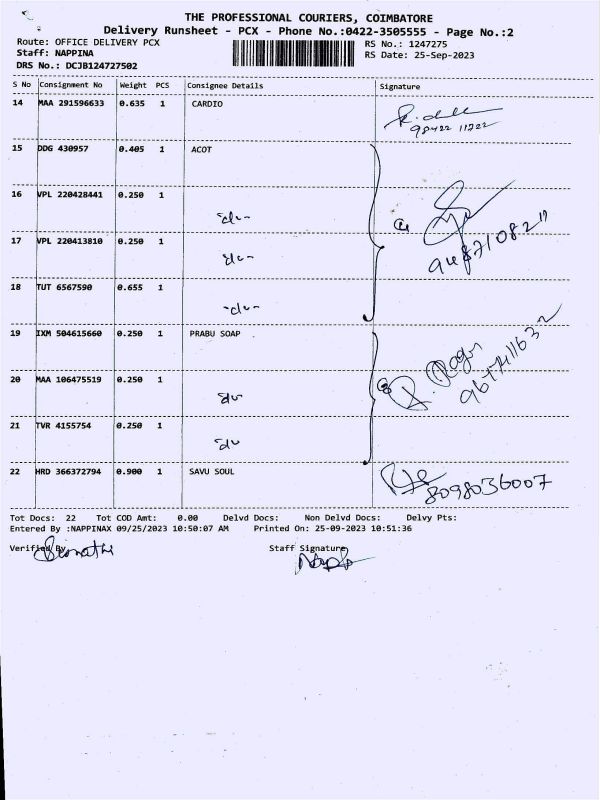 THE PROFESSIONAL COURIERS, COIMBATORE
Delivery Runsheet - PCX - Phone No.:0422-3505555 - Page No.:2
Route: OFFICE DELIVERY PCX RS No.: 1247275
Staff: NAPPINA RS Date: 25-Sep-2023
DRS No.: DCJB124727502
S No Consignment No Weight PCS Consignee Details Signature
14 MAA 291596633 0.635 1 CARDIO
98422 11222
15 DDG 430957 0.405 1 ACOT
16 VPL 220428441 0.250 1
17 VPL 220413810 0.250 1
18 TUT 6567590 0.655 1
19 IXM 504615660 0.250 1 PRABU SOAP
20 MAA 106475519 0.250 1
21 TVR 4155754 0.250 1
22 HRD 366372794 0.900 1 SAVU SOUL
8098036007
Tot Docs: 22 Tot COD Amt: 0.00 Delvd Docs: Non Delvd Docs: Delvy Pts:
Entered By :NAPPINAX 09/25/2023 10:50:07 AM Printed On: 25-09-2023 10:51:36
Verified By Staff Signature